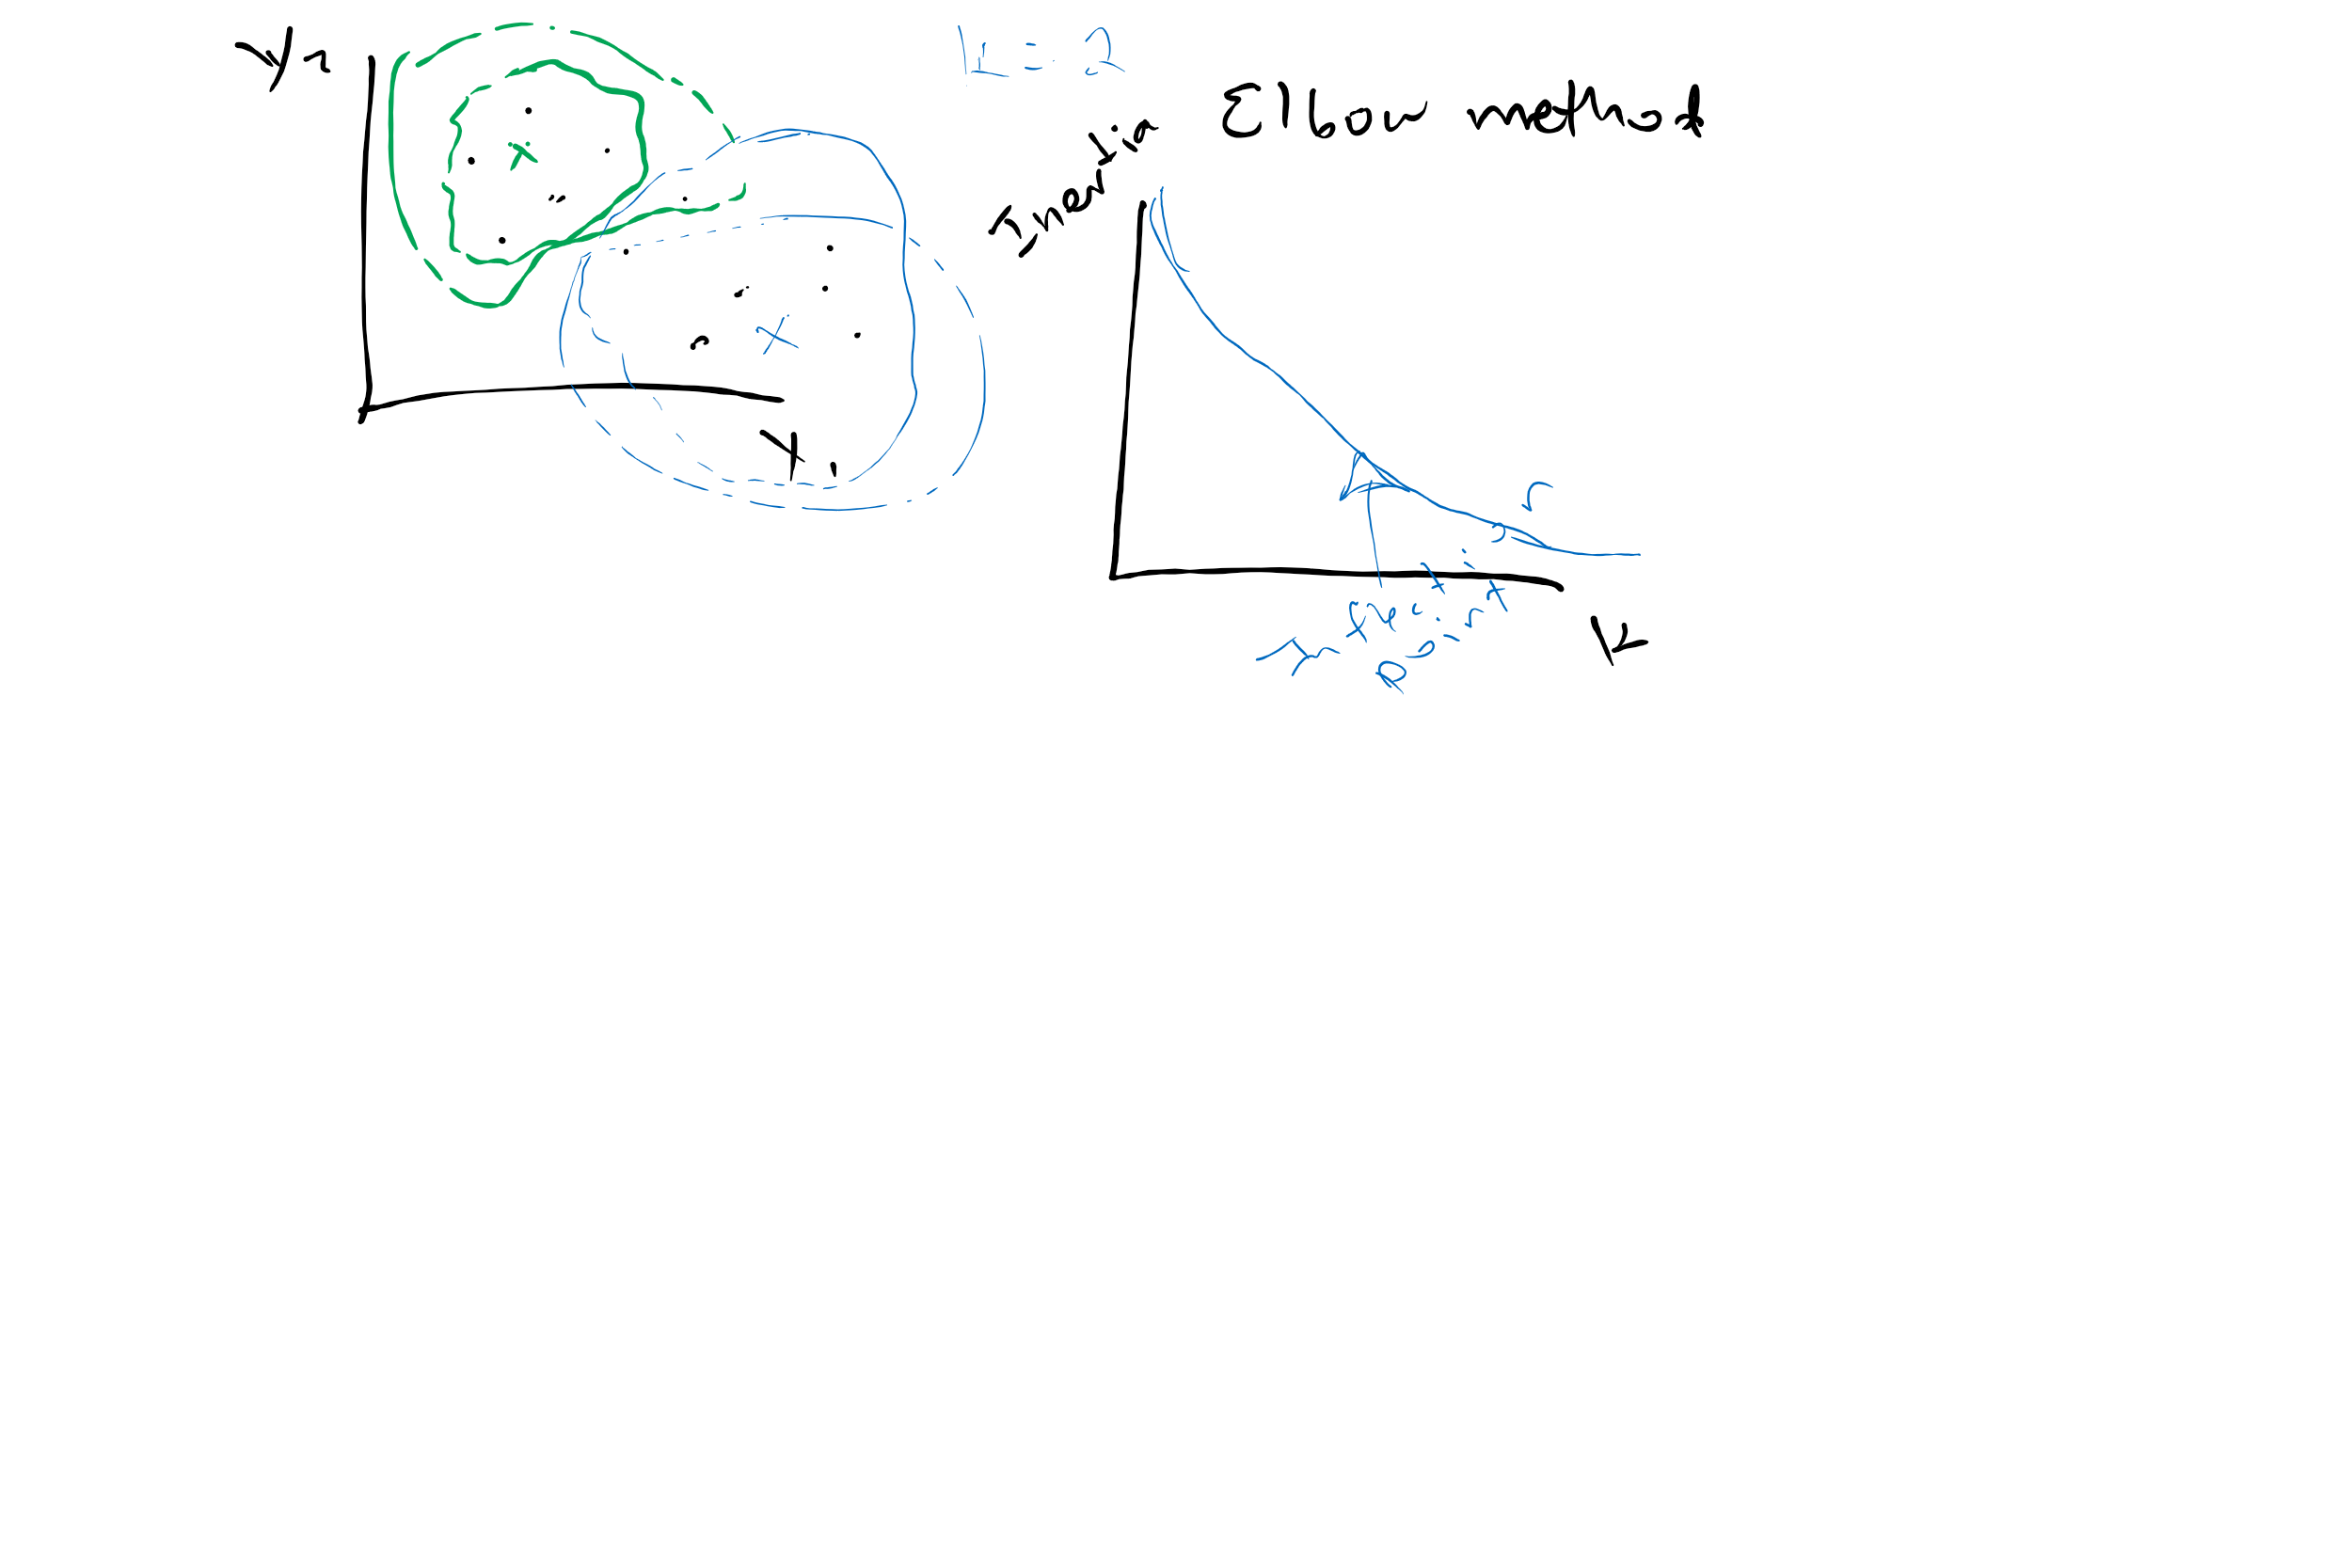 k = 2
Elbow method
Inertia
Inflection
point
k